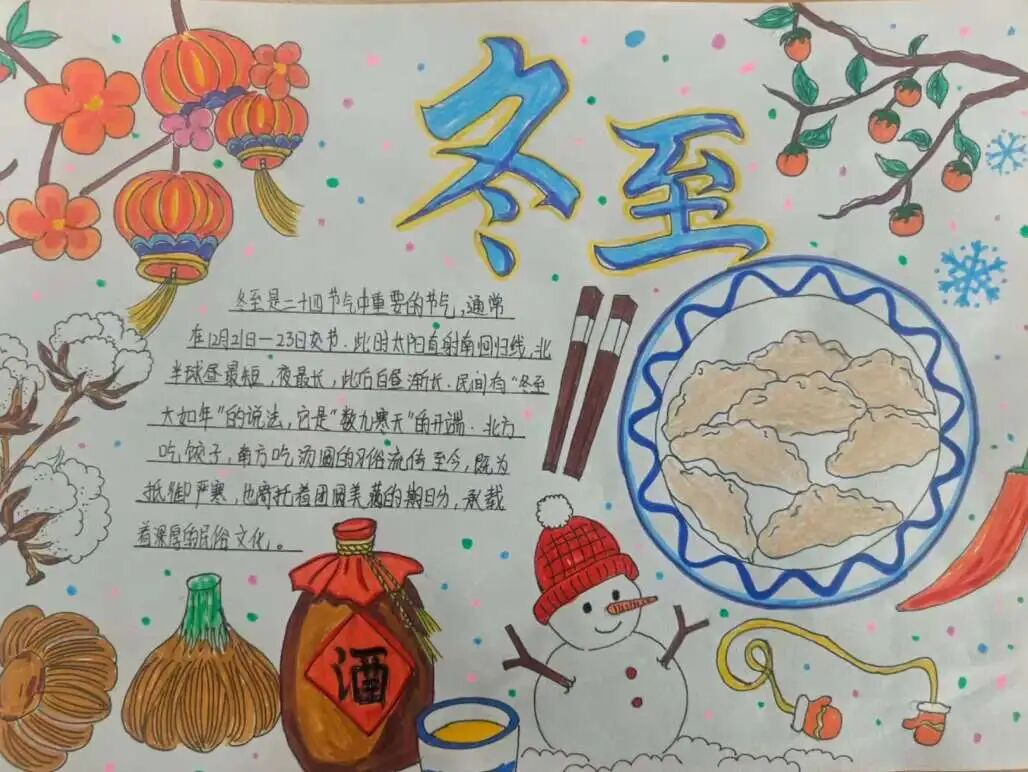 冬至
冬至是二十四节气中重要的节气,通常
在12月21日—23日交节.此时太阳直射南回归线,北
半球昼最短,夜最长,此后白昼渐长.民间有“冬至
大如年”的说法,它是“数九寒天”的开端.北方
吃饺子,南方吃汤圆的习俗流传至今,既为
抵御严寒,也寄托着团圆美满的期盼,承载
着深厚的民俗文化。
酒